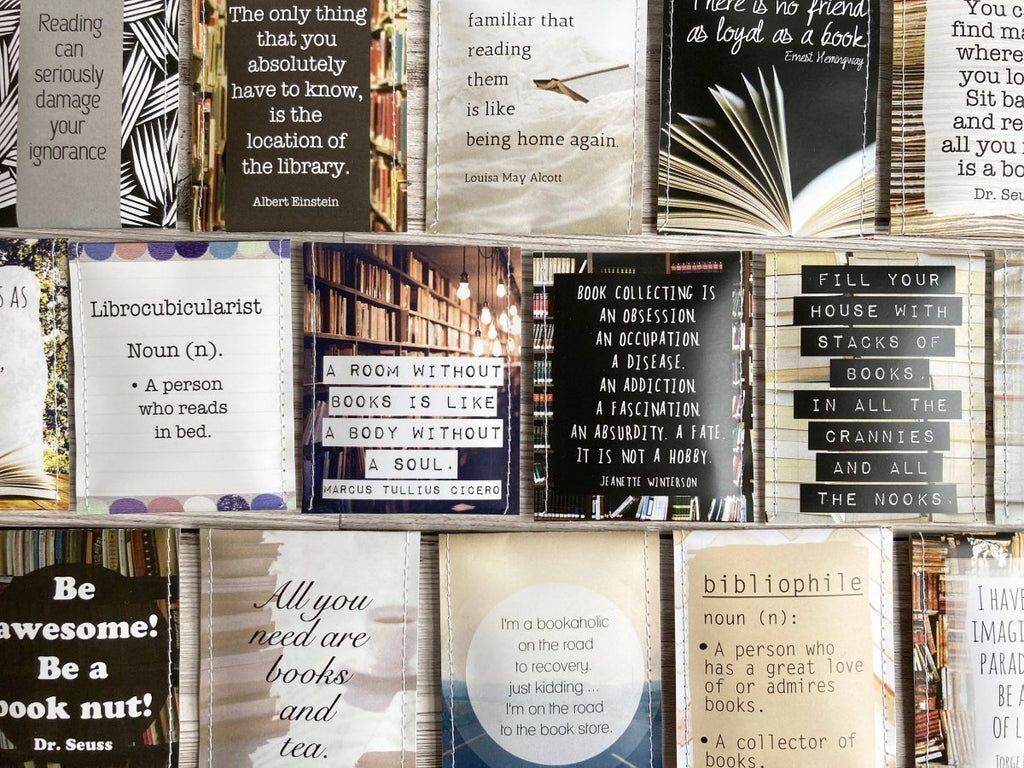 Reading
can
seriously
damage
your
ignorance
The only thing
that you
absolutely
have to know,
is the
location of
the library.
Albert Einstein
familiar that
reading
them
is like
being home again.
Louisa May Alcott
There is no friend
as loyal as a book
Ernest Hemingway
You c
find ma
where
you lo
Sit ba
and re
all you
is a bo
Dr. Seu
S AS
Librocubicularist
Noun (n).
• A person
who reads
in bed.
A ROOM WITHOUT
BOOKS IS LIKE
A BODY WITHOUT
A SOUL.
MARCUS TULLIUS CICERO
BOOK COLLECTING IS
AN OBSESSION.
AN OCCUPATION.
A DISEASE.
AN ADDICTION.
A FASCINATION.
AN ABSURDITY. A FATE.
IT IS NOT A HOBBY.
JEANETTE WINTERSON
FILL YOUR
HOUSE WITH
STACKS OF
BOOKS,
IN ALL THE
CRANNIES
AND ALL
THE NOOKS.
Be
awesome!
Be a
book nut!
Dr. Seuss
All you
need are
books
and
tea.
I'm a bookaholic
on the road
to recovery.
just kidding ...
I'm on the road
to the book store.
bibliophile
noun (n):
• A person who
has a great love
of or admires
books.
• A collector of
books.
I HAVE
IMAGI
PARAD
BE A
OF L
JORGE